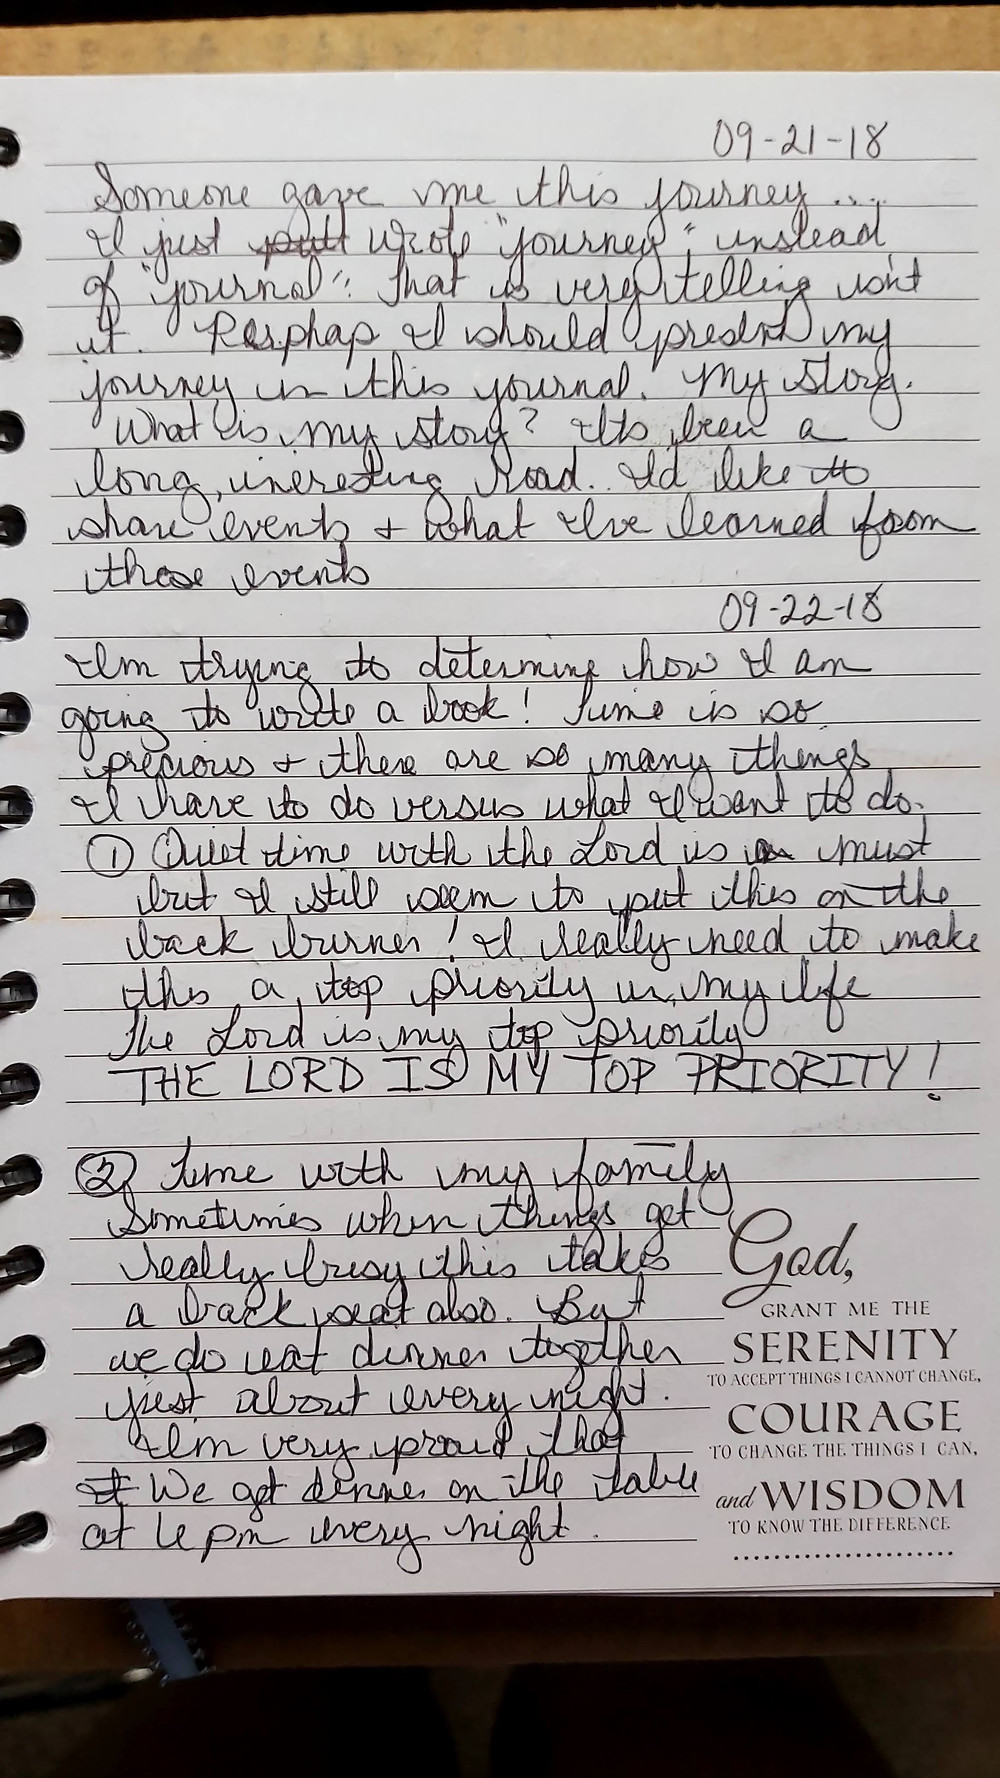 09-21-18
Someone gave me this journey ...
I just wrote "journey" instead
of "journal". That is very telling isn't
it. Perphaps I should present my
journey in this journal. My story.
What is my story? Its been a
long, ineresting road. I'd like to
share events + what I've learned from
those events
09-22-18
I'm trying to determine how I am
going to write a book! Time is so
precious + there are so many things
I have to do versus what I want to do.
① Quiet time with the Lord is a must
but I still seem to put this on the
back burner! I really need to make
this a top priority in my life
The Lord is my top priority
THE LORD IS MY TOP PRIORITY!
② Time with my family
Sometimes when things get
really busy this takes
a back seat also. But
we do eat dinner together
just about every night.
I'm very proud that
We get dinner on the table
at 6 pm every night.
God,
GRANT ME THE
SERENITY
TO ACCEPT THINGS I CANNOT CHANGE,
COURAGE
TO CHANGE THE THINGS I CAN,
and WISDOM
TO KNOW THE DIFFERENCE